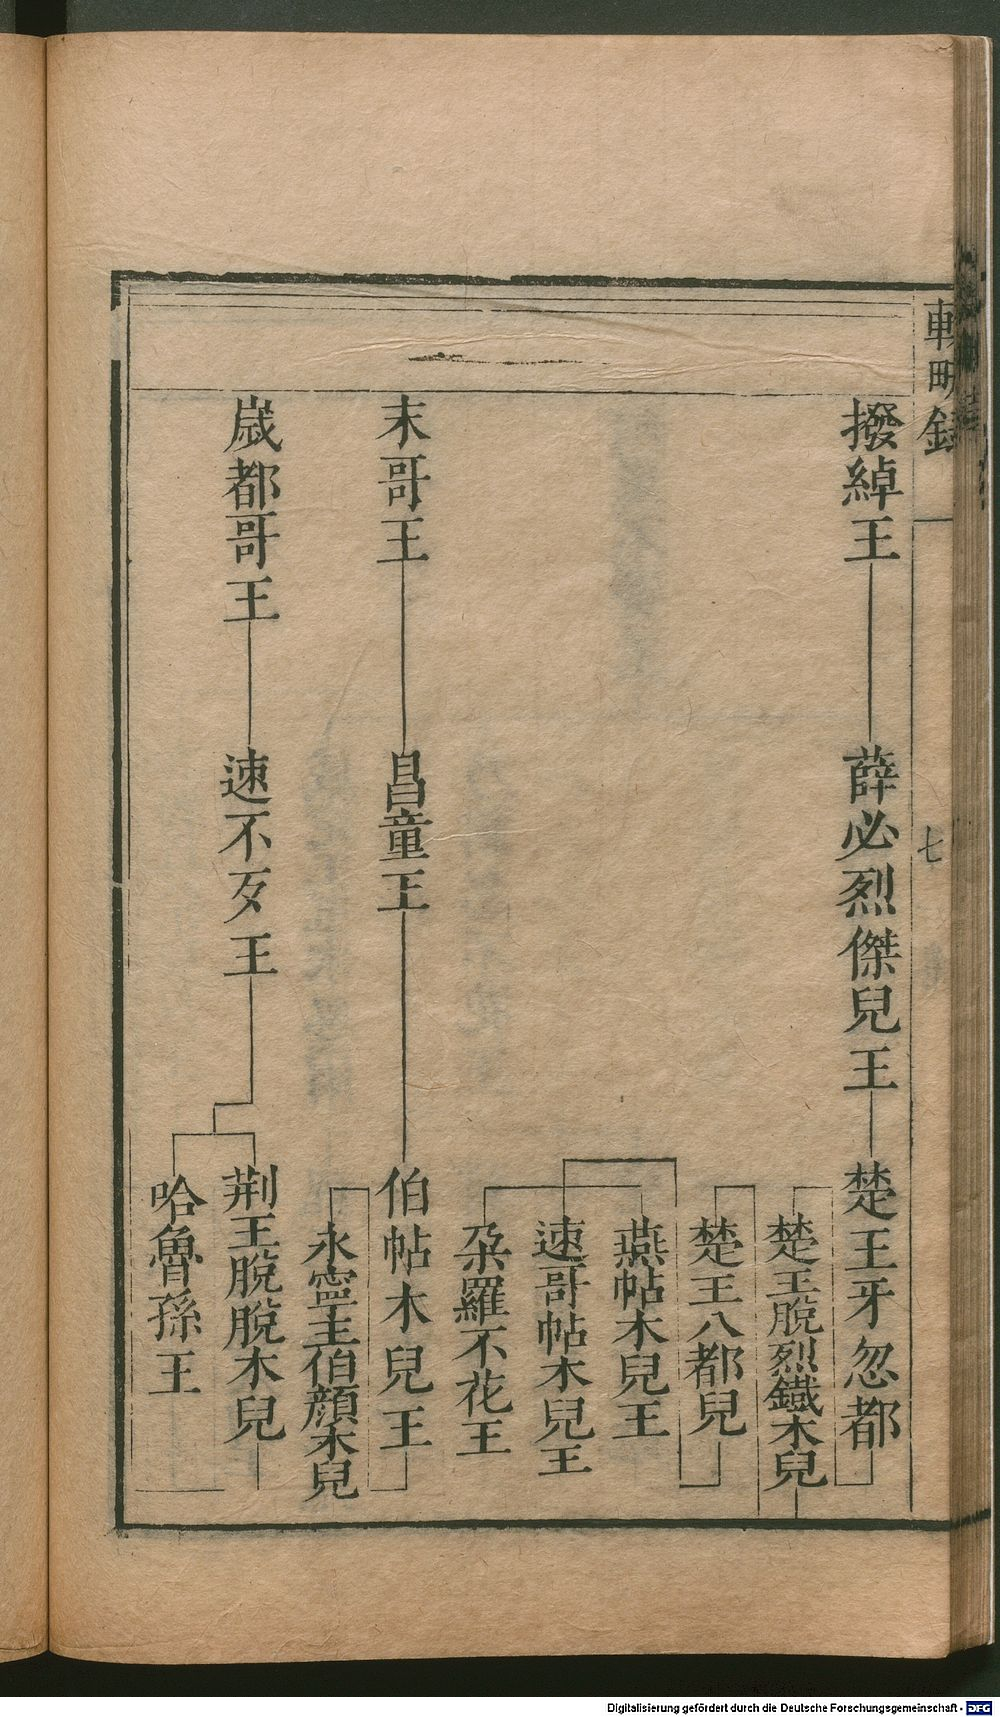 輟畊録
七
撥綽王
薛必烈傑兒王
楚王牙忽都
楚王脫烈鐵木兒
楚王八都兒
燕帖木兒王
速哥帖木兒王
朶羅不花王
末哥王
昌童王
伯帖木兒王
永寧王伯顔木兒
嵗都哥王
速不歹王
荆王脫脫木兒
哈魯孫王
Digitalisierung gefördert durch die Deutsche Forschungsgemeinschaft - DFG